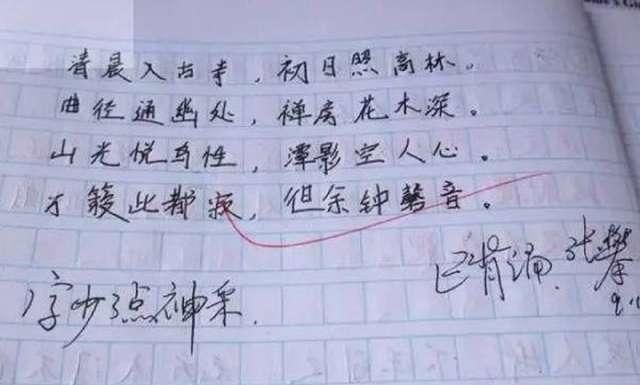 清晨入古寺，初日照高林。
曲径通幽处，禅房花木深。
山光悦鸟性，潭影空人心。
万籁此都寂，但余钟磬音。
已背诵.张
字少了点神采.